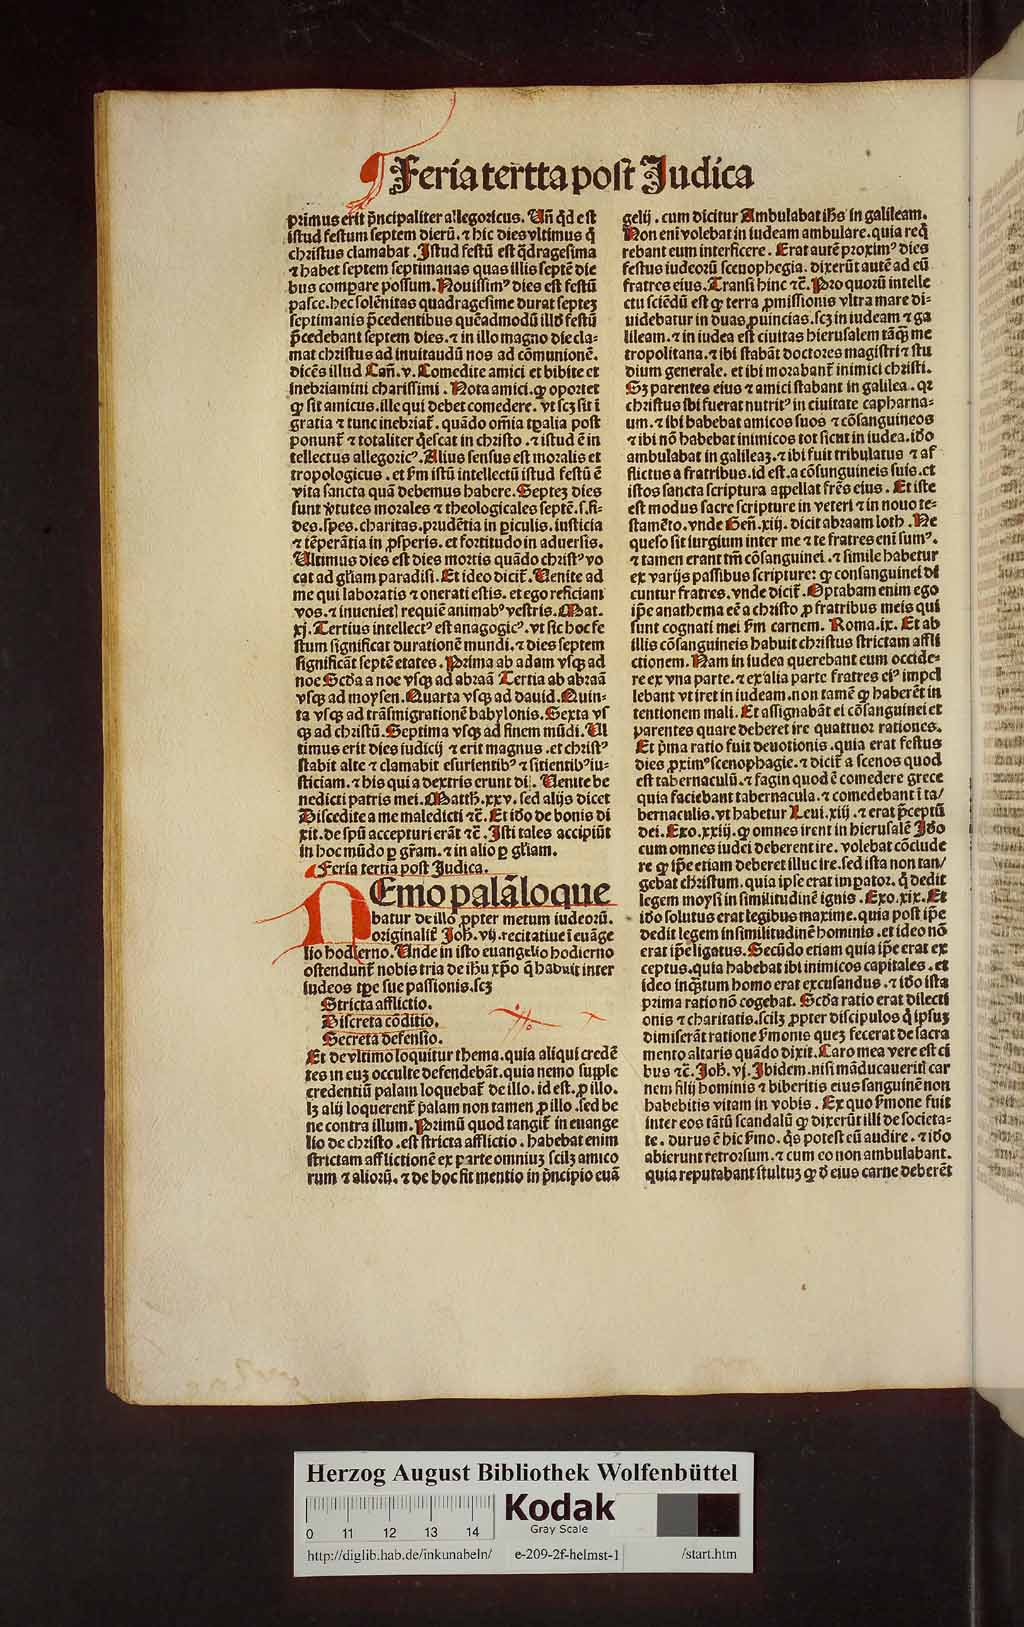 Feria tertta post Judica
primus erit p̄ncipaliter allegoricus. Un̄ q̇d est
istud festum septem dierū. ⁊ hic dies vltimus q̄
christus clamabat. Istud festū est q̄dragesima
⁊ habet septem septimanas quas illis septē die
bus compare possum. Nouissimꝰ dies est festū
pasce. hec solēnitas quadragesime durat septeꝫ
septimanis p̄cedentibus quēadmodū illd̄ festū
p̄cedebant septem dies. ⁊ in illo magno die cla-
mat christus ad inuitaudū nos ad cōmunionē.
dicēs illud Can̄. v. Comedite amici et bibite et
inebriamini charissimi. Nota amici. ꝙ oportet
ꝙ sit amicus. ille qui debet comedere. vt scꝫ sit ī
gratia ⁊ tunc inebriat̄. quādo om̄ia tp̄alia post
ponunt̄ ⁊ totaliter q̇escat in christo. ⁊ istud ē in
tellectus allegoricꝰ. Alius sensus est moralis et
tropologicus. et s̄m istū intellectū istud festū ē
vita sancta quā debemus habere. Septeꝫ dies
sunt v̄tutes morales ⁊ theologicales septē. s. fi-
des. spes. charitas. prudētia in piculis. iusticia
⁊ tēperātia in ꝓsperis. et fortitudo in aduersis.
Ultimus dies est dies mortis quādo christꝰ vo
cat ad gl̄iam paradisi. Et ideo dicit̄. Uenite ad
me qui laboratis ⁊ onerati estis. et ego reficiam
vos. ⁊ inueniet] requiē animabꝰ vestris. Mat.
xj. Tertius intellectꝰ est anagogicꝰ. vt sic hoc fe
stum significat durationē mundi. ⁊ dies septem
significāt septē etates. Prima ab adam vsqꝫ ad
noe Scd̄a a noe vsqꝫ ad abraā Tertia ab abraā
vsqꝫ ad moysen. Quarta vsqꝫ ad dauid. Quin-
ta vsqꝫ ad trāsmigrationē babylonis. Sexta vs
qꝫ ad christū. Septima vsqꝫ ad finem mūdi. Ul
timus erit dies iudicij ⁊ erit magnus. et christꝰ
stabit alte ⁊ clamabit esurientibꝰ ⁊ sitientibꝰ iu-
sticiam. ⁊ his qui a dextris erunt di]. Uenite be
nedicti patris mei. Matth. xxv. sed alijs dicet
Discedite a me maledicti ⁊c̄. Et id̄o de bonis di
xit. de spū accepturi erāt ⁊c̄. Isti tales accipiūt
in hoc mūdo ꝑ gr̄am. ⁊ in alio ꝑ gl̄iam.
Feria tertia post Judica.
NEmo palā loque
batur de illo ꝓpter metum iudeorū.
originalit̄ Joh̄. vij. recitatiue ī euāge
lio hodierno. Unde in isto euangelio hodierno
ostendunt̄ nobis tria de ih̄u xp̄o q̄ habuit inter
iudeos tp̄e sue passionis. scꝫ
Stricta afflictio.
Discreta cōditio.
Secreta defensio.
Et de vltimo loquitur thema. quia aliqui credē
tes in euꝫ occulte defendebāt. quia nemo supple
credentiū palam loquebat̄ de illo. id est. ꝓ illo.
lꝫ alij loquerent̄ palam non tamen ꝓ illo. sed be
ne contra illum. Primū quod tangit̄ in euange
lio de christo. est stricta afflictio. habebat enim
strictam afflictionē ex parte omniuꝫ scilꝫ amico
rum ⁊ aliorū. ⁊ de hoc fit mentio in p̄ncipio euā
gelij. cum dicitur Ambulabat ih̄s in galileam.
Non eni volebat in iudeam ambulare. quia req̄
rebant eum interficere. Erat autē proximꝰ dies
festus iudeorū scenophegia. dixerūt autē ad eū
fratres eius. Transi hinc ⁊c̄. Pro quorū intelle
ctu sciēdū est ꝙ terra ꝓmissionis vltra mare di-
uidebatur in duas ꝓuincias. scꝫ in iudeam ⁊ ga
lileam. ⁊ in iudea est ciuitas hierusalem tāqꝫ me
tropolitana. ⁊ ibi stabāt doctores magistri ⁊ stu
dium generale. et ibi morabant̄ inimici christi.
Sꝫ parentes eius ⁊ amici stabant in galilea. qꝛ
christus ibi fuerat nutritꝰ in ciuitate capharna-
um. ⁊ ibi habebat amicos suos ⁊ cōsanguineos
⁊ ibi nō habebat inimicos tot sicut in iudea. id̄o
ambulabat in galileaꝫ. ⁊ ibi fuit tribulatus ⁊ af
flictus a fratribus. id est. a cōsanguineis suis. et
istos sancta scriptura appellat fr̄es eius. Et iste
est modus sacre scripture in veteri ⁊ in nouo te-
stamēto. vnde Gen̄. xiij. dicit abraam loth. Ne
queso sit iurgium inter me ⁊ te fratres eni sumꝰ.
⁊ tamen erant tm̄ cōsanguinei. ⁊ simile habetur
ex varijs passibus scripture: ꝙ consanguinei di
cuntur fratres. vnde dicit̄. Optabam enim ego
ip̄e anathema eē a christo ꝓ fratribus meis qui
sunt cognati mei s̄m carnem. Roma. ix. Et ab
illis cōsanguineis habuit christus strictam affli
ctionem. Nam in iudea querebant eum occide-
re ex vna parte. ⁊ ex alia parte fratres eiꝰ impel
lebant vt iret in iudeam. non tamē ꝙ haberēt in
tentionem mali. Et assignabāt ei cōsanguinei et
parentes quare deberet ire quattuor rationes.
Et p̄ma ratio fuit deuotionis. quia erat festus
dies ꝓximꝰ scenophagie. ⁊ dicit̄ a scenos quod
est tabernaculū. ⁊ fagin quod ē comedere grece
quia faciebant tabernacula. ⁊ comedebant ī ta/
bernaculis. vt habetur Leui. xiij. ⁊ erat p̄ceptū
dei. Exo. xxiij. ꝙ omnes irent in hierusalē Id̄o
cum omnes iudei deberent ire. volebat cōclude
re ꝙ ip̄e etiam deberet illuc ire. sed ista non tan/
gebat christum. quia ipse erat impator. q̇ dedit
legem moysi in similitudinē ignis. Exo. xix. Et
id̄o solutus erat legibus maxime. quia post ip̄e
dedit legem in similitudinē hominis. et ideo nō
erat ip̄e ligatus. Secūdo etiam quia ip̄e erat ex
ceptus. quia habebat ibi inimicos capitales. et
ideo inq̄tum homo erat excusandus. ⁊ id̄o ista
prima ratio nō cogebat. Scd̄a ratio erat dilecti
onis ⁊ charitatis. scilꝫ ꝓpter discipulos q̇ ipsuꝫ
dimiserāt ratione s̄monis queꝫ fecerat de sacra
mento altaris quādo dixit. Caro mea vere est ci
bus ⁊c̄. Joh̄. vj. Ibidem. nisi māducaueriti car
nem filij hominis ⁊ biberitis eius sanguinē non
habebitis vitam in vobis. Ex quo s̄mone fuit
inter eos tātū scandalū ꝙ dixerūt illi de societa-
te. durus ē hic s̄mo. q̇s potest eū audire. ⁊ id̄o
abierunt retrorsum. ⁊ cum eo non ambulabant.
quia reputabant stultuꝫ ꝙ d̄ eius carne deberēt
Herzog August Bibliothek Wolfenbüttel
Kodak
Gray Scale
0 11 12 13 14
http://diglib.hab.de/inkunabeln/ e-209-2f-helmst-1 /start.htm